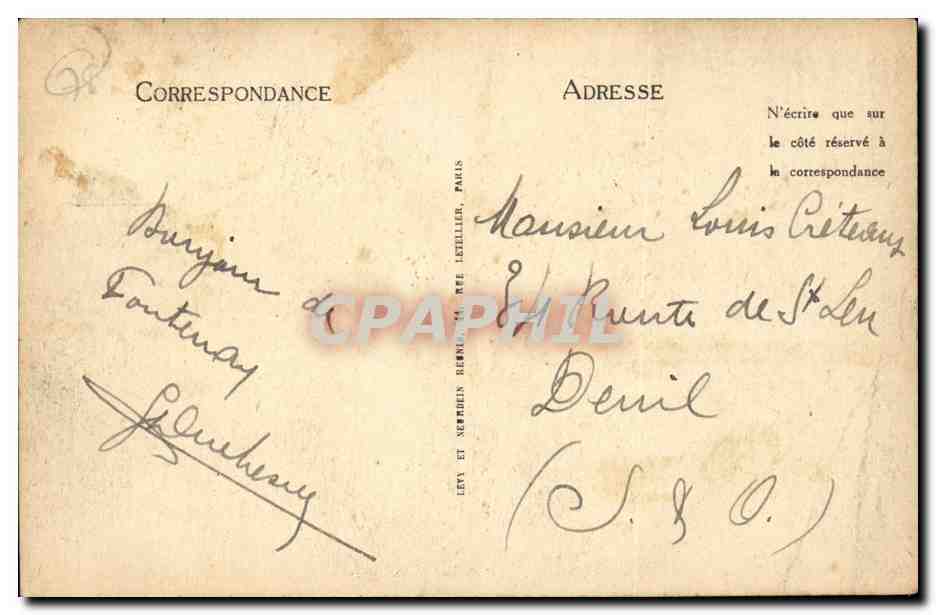 CORRESPONDANCE
ADRESSE
N'écrire que sur
le côté réservé à
la correspondance
Bonjour de
Fontenay
LEVY ET NEURDEIN REUNIS, 44, RUE LETELLIER, PARIS
Monsieur Louis Créteaux
34 Route de St Leu
Deuil
(S. & O.)
CPAPHIL